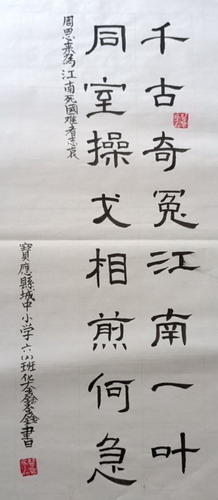 千古奇冤江南一叶
同室操戈相煎何急
周恩来为江南死國难者志哀
寶應縣城中小学六(3)班华鑫鑫書